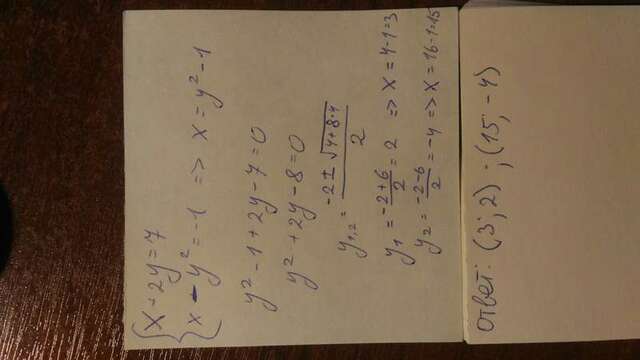 { x + 2y = 7
x - y² = -1 => x = y² - 1
y² - 1 + 2y - 7 = 0
y² + 2y - 8 = 0
y₁,₂ = (-2 ± √(4+8·4))/2
y₁ = (-2+6)/2 = 2 => x = 4-1=3
y₂ = (-2-6)/2 = -4 => x = 16-1=15
Ответ: (3; 2) ; (15; -4)